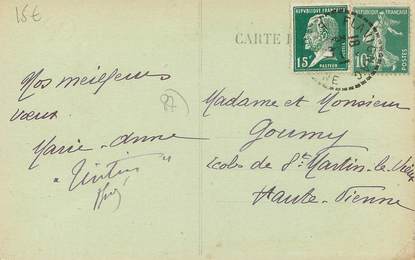 15€
CARTE
RÉPUBLIQUE FRANÇAISE
15c
PASTEUR
POSTES
10c
POSTES
18
87
Nos meilleurs
vœux
Marie-Anne
"Tintin"
Madame et Monsieur
Goumy
École de St Martin-le-Vieux
Haute-Vienne